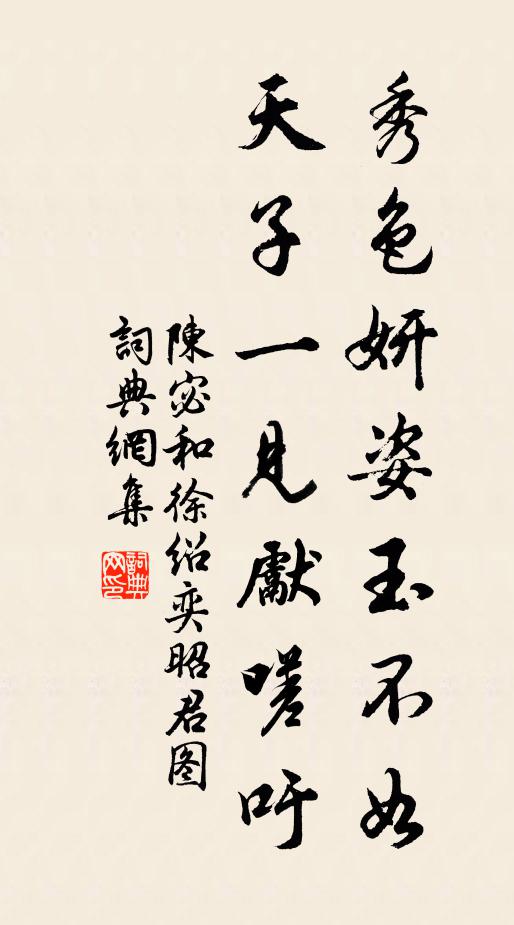 秀色妍姿玉不如
天子一見獻嗟吁
陳宓和徐绍奕昭君图
詞典網集
詞典网印